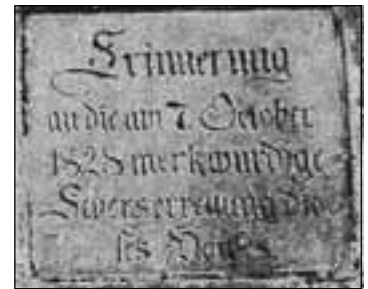 Erinnerung
an die am 7. October
1828 merkwürdige
Feüerserrettung die=
ses Hauses